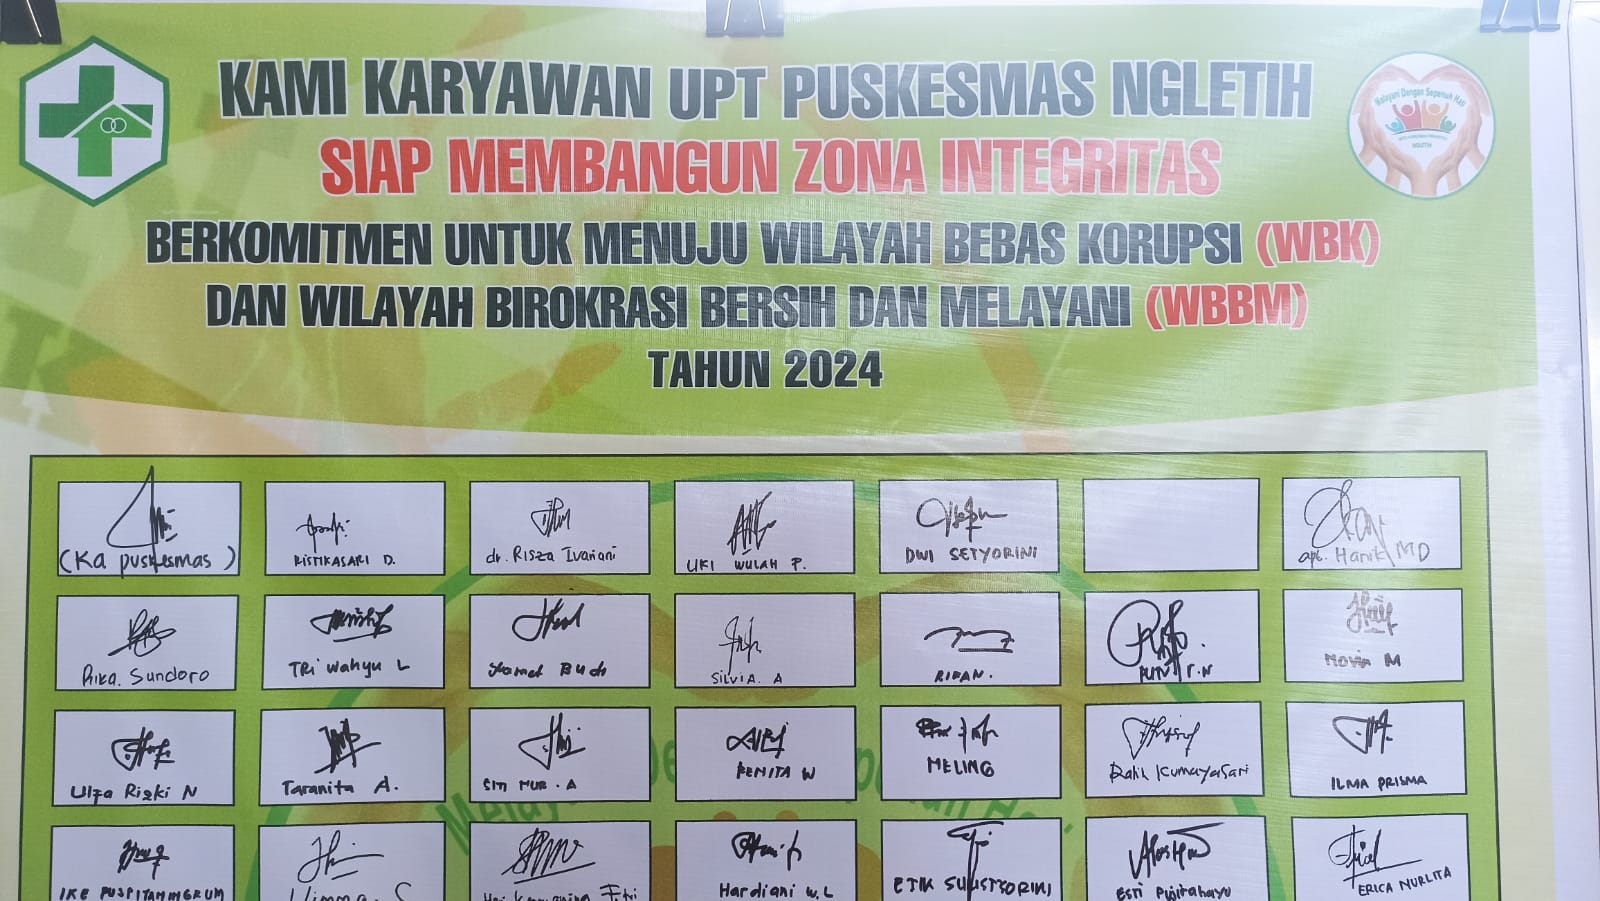 KAMI KARYAWAN UPT PUSKESMAS NGLETIH
SIAP MEMBANGUN ZONA INTEGRITAS
BERKOMITMEN UNTUK MENUJU WILAYAH BEBAS KORUPSI (WBK)
DAN WILAYAH BIROKRASI BERSIH DAN MELAYANI (WBBM)
TAHUN 2024
Melayani Dengan Sepenuh Hati
NGLETIH
(Ka puskesmas)
RISTIKASARI D.
dr. Risza Ivariani
UKI WULAH P.
DWI SETYORINI
apt. Hanik MD
Rika. Sundoro
TRi Wahyu L
Budi
SILVIA. A
RIFAN.
PUTVI T.N
Novia M
Ulfa Rizki N
Taranita A.
SITI NUR. A
RENITA W
MELING
Ratih Kumayasari
ILMA PRISMA
IKE PUSPITANINGRUM
Hardiani W.L
ETIK SULISTYORINI
Esti Pujirahayu
ERICA NURLITA